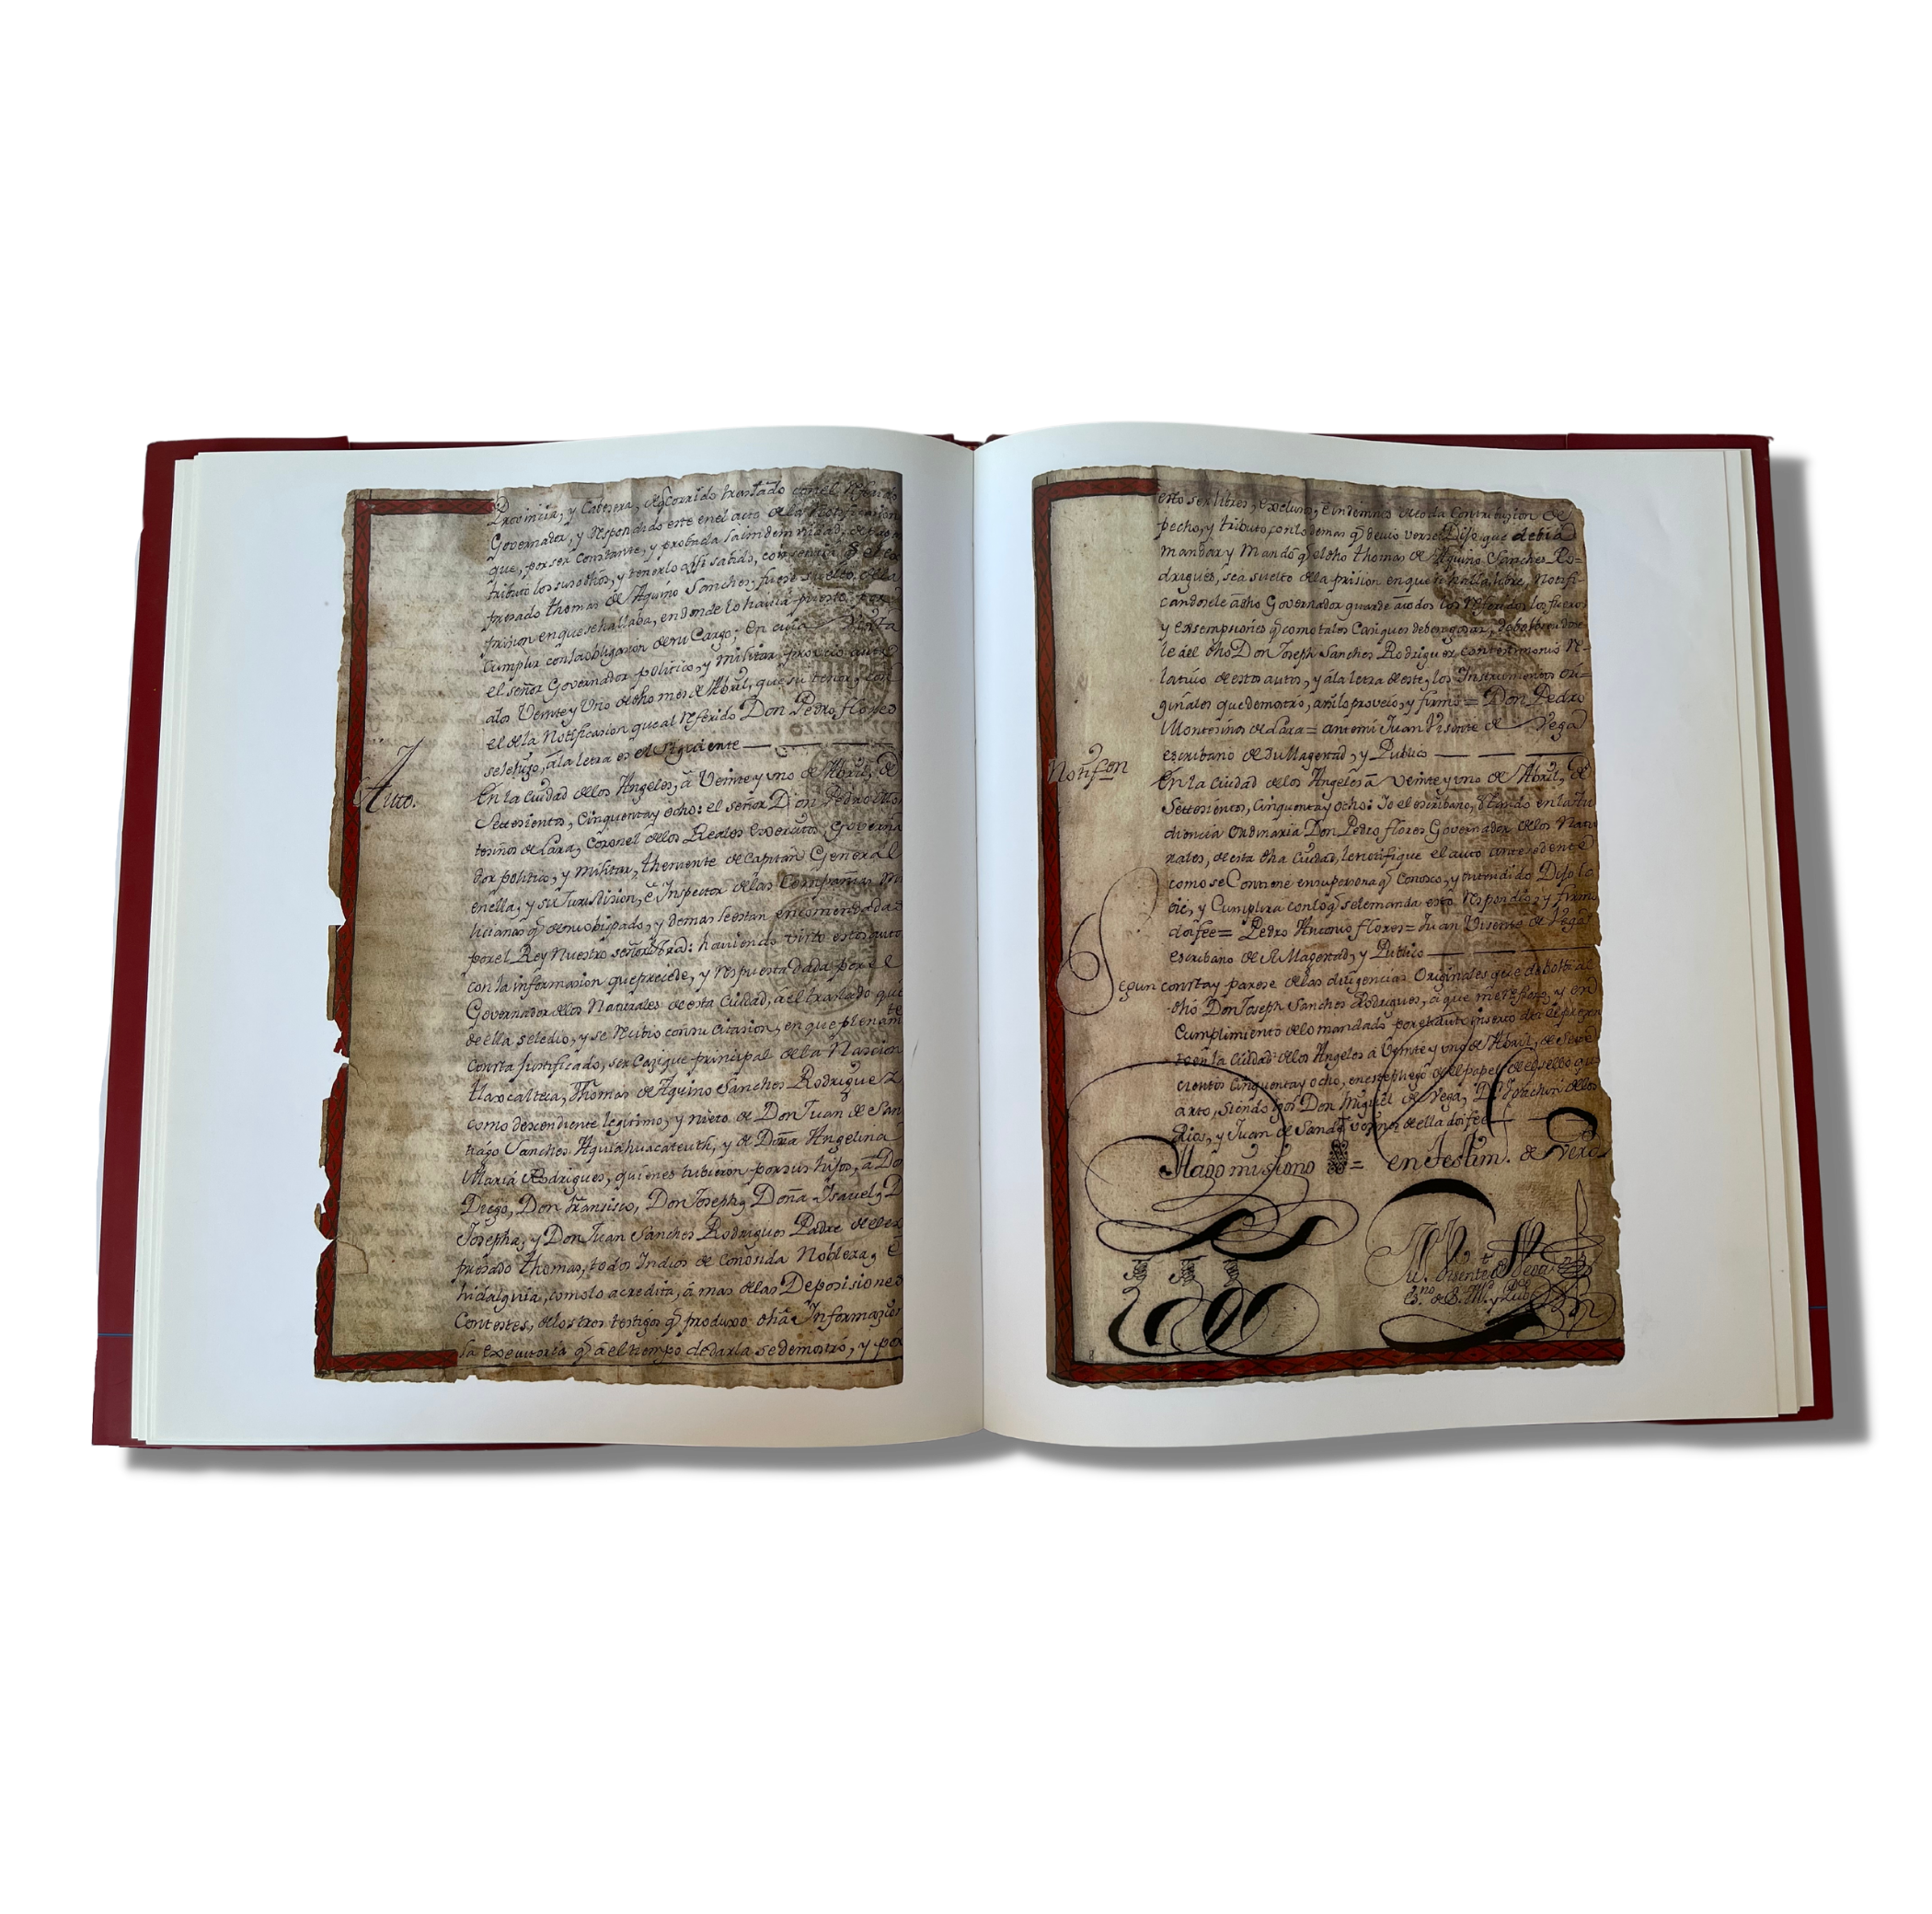 Provincia, y Cabesera, de q̃ Corrido traslado con el Referido
Governador, y Respondido este en el acto de la Notificasion
que, por ser Constante, y probada la indemnidad, de
tributo los susodhõs, y tenerlo assi sabido, consentia q̃ el ex-
presado thomas de Aquino Sanches, fuese suelto de la
prision en que se hallaba, en donde lo havia puesto, por
Cumplir con la obligasion de su Cargo; En cuia Vista
el señor Governador politico, y militar, proveió auto
a los Veinte y Uno de dho mes de Abril, que su tenor, y con
el de la Notificasion que al Referido Don Pedro flores
se le hizo, a la letra es el Siguiente
Auto.
En la Ciudad de los Angeles, â Veinte y uno de Abril, de
Settesientos, Cinquenta y ocho: el señor Don Pedro Mon
tesinos de Lara, Coronel de los Reales exercitos, Governa
dor politico, y militar, theniente de Capitan General
en ella, y su Jurisdision, e Inspector de las Compañias Mi
licianas q̃ de su obispado, y demas le estan encomendadas
por el Rey Nuestro señor &ra: haviendo visto estos autos
con la informasion que precede, y Respuesta dada por el
Governador de los Naturales de esta Ciudad, â el traslado que
de ella se le dio, y se Resivio con su Citasion, en que plenamte
Consta Justificado, ser Cazique principal de la Nascion
tlaxcalteca, Thomas de Aquino Sanches Rodriguez
como descendiente legitimo, y nieto de Don Juan de San
tiago Sanches Aquiahuacateuth, y de Doña Angelina
Maria Rodrigues, quienes tubieron por sus hijos, â Don
Diego, Don Fransisco, Don Joseph, Doña Ysavel, D
Josepha, y Don Juan Sanches Rodrigues Padre de el ex
presado thomas, todos Indios de Conosida Nobleza, é
hidalguia, como lo acredita, á mas de las Deposisiones
Contestes, de los tres testigos q̃ produxo dha Informasion
la executoria q̃ â el tiempo de darla se demostró, y por
esto ser libres, exclusos, é indemnes de toda Contribusion de
pecho, y tributo, con lo demas q̃ devio verse Dijo: que debia
mandar y Mandó q̃ el dho thomas de Aquino Sanches Ro-
drigues, sea suelto de la prision en que se halla, libre, Notifi-
candosele â dho Governador guarde â todos los Referidos los fueros
y exsempsiones q̃ como tales Casiques deben gosar, debolbiendose
le â el dho Don Joseph Sanches Rodriguez con testimonio Re-
lativo de estos autos, y â la letra de este, los Instrumentos ori-
ginales que demostró, assi lo proveió, y firmó = Don Pedro
Montesinos de Lara = ante mi Juan Visente de Vega
escribano de Su Magestad, y Publico
Notifon
En la Ciudad de los Angeles â veinte y uno de Abril, de
Settesientos, Cinquenta y ocho: Yo el escribano, estando en la Au
diencia ordinaria Don Pedro flores Governador de los Natu
rales, de esta dha Ciudad, le notifique el auto antesedente
como se Contiene en su persona q̃ Conosco, y entendido Dijo lo
oie, y Cumplira con lo q̃ se le manda esto Respondio, y firmó
doi fee = Pedro Antonio flores = Juan Visente de Vega
Escribano de Su Magestad, y Publico
Segun consta y parese de las diligencias Originales que debolbi al
dhõ Don Joseph Sanches Rodrigues, â que me refiero, y en
Cumplimiento de lo mandado por el auto inserto doi el presen
te en la Ciudad de los Angeles â Veinte y uno de Abril, de Sette
cientos Cinquenta y ocho, en este pliego de el papel de el sello qu
arto, Siendo tgos Don Miguel de Vega, Dn Joachin de los
Rios, y Juan de Sandoval vesinos de ella doi fee
Hago mi signo = en testim. de Verd
Jn. Visente de Vega
Es.no de S. M. y Pubco